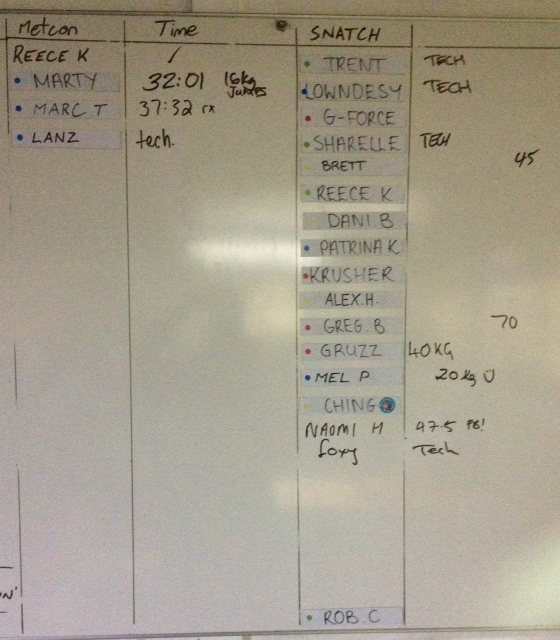 Metcon Time SNATCH
REECE K /
MARTY 32:01 16kg
MARC T 37:32 rx
LANZ tech.
TRENT TECH
LOWNDESY TECH
G-FORCE
SHARELLE TECH
BRETT 45
REECE K
DANI B
PATRINA K
KRUSHER
ALEX.H.
GREG. B 70
GRUZZ 40KG
MEL P 20kg
CHING
NAOMI H 47.5 PB!
foxy Tech
ROB. C